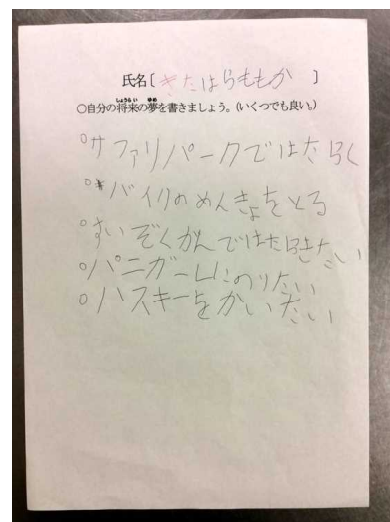 氏名〔きたはらももか〕
○自分の将来の夢を書きましょう。(いくつでも良い。)
○サファリパークではたらく
○バイクのめんきょをとる
○すいぞくがんではたらきたい
○パニガーレにのりたい
○ハスキーをかいたい